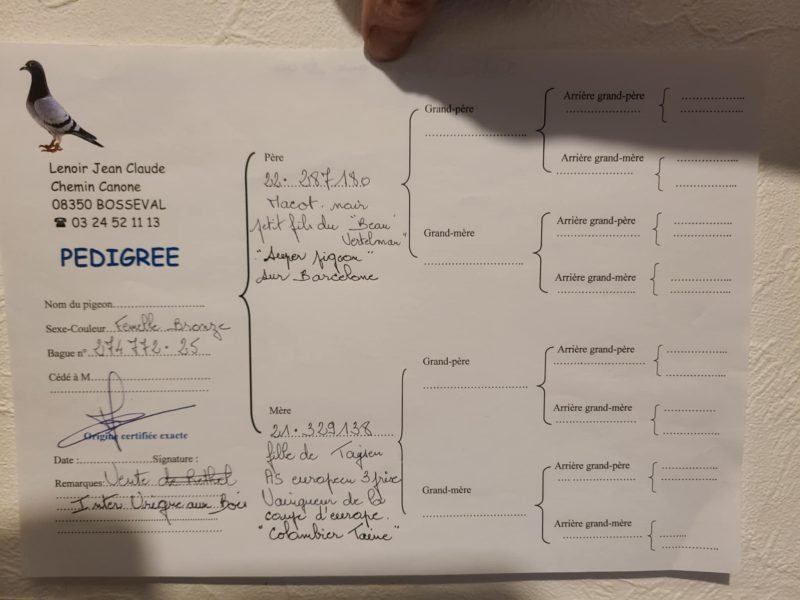 Lenoir Jean Claude
Chemin Canone
08350 BOSSEVAL
☎ 03 24 52 11 13
PEDIGREE
Nom du pigeon
Sexe-Couleur Femelle Bronze
Bague n° 274772.25
Cédé à M
Origine certifiée exacte
Date : Signature :
Remarques: Vente de Rethel
Inter Vrigne aux Bois
Père
22.287180
Macot noir
petit fils du "Beau
Vertelman"
"Super pigeon"
sur Barcelone
Mère
21.329138
fille de
As europeen 3 prix
Vainqueur de la
coupe d'europe.
"Colombier Taine"
Grand-père
Grand-mère
Grand-père
Grand-mère
Arrière grand-père
Arrière grand-mère
Arrière grand-père
Arrière grand-mère
Arrière grand-père
Arrière grand-mère
Arrière grand-père
Arrière grand-mère